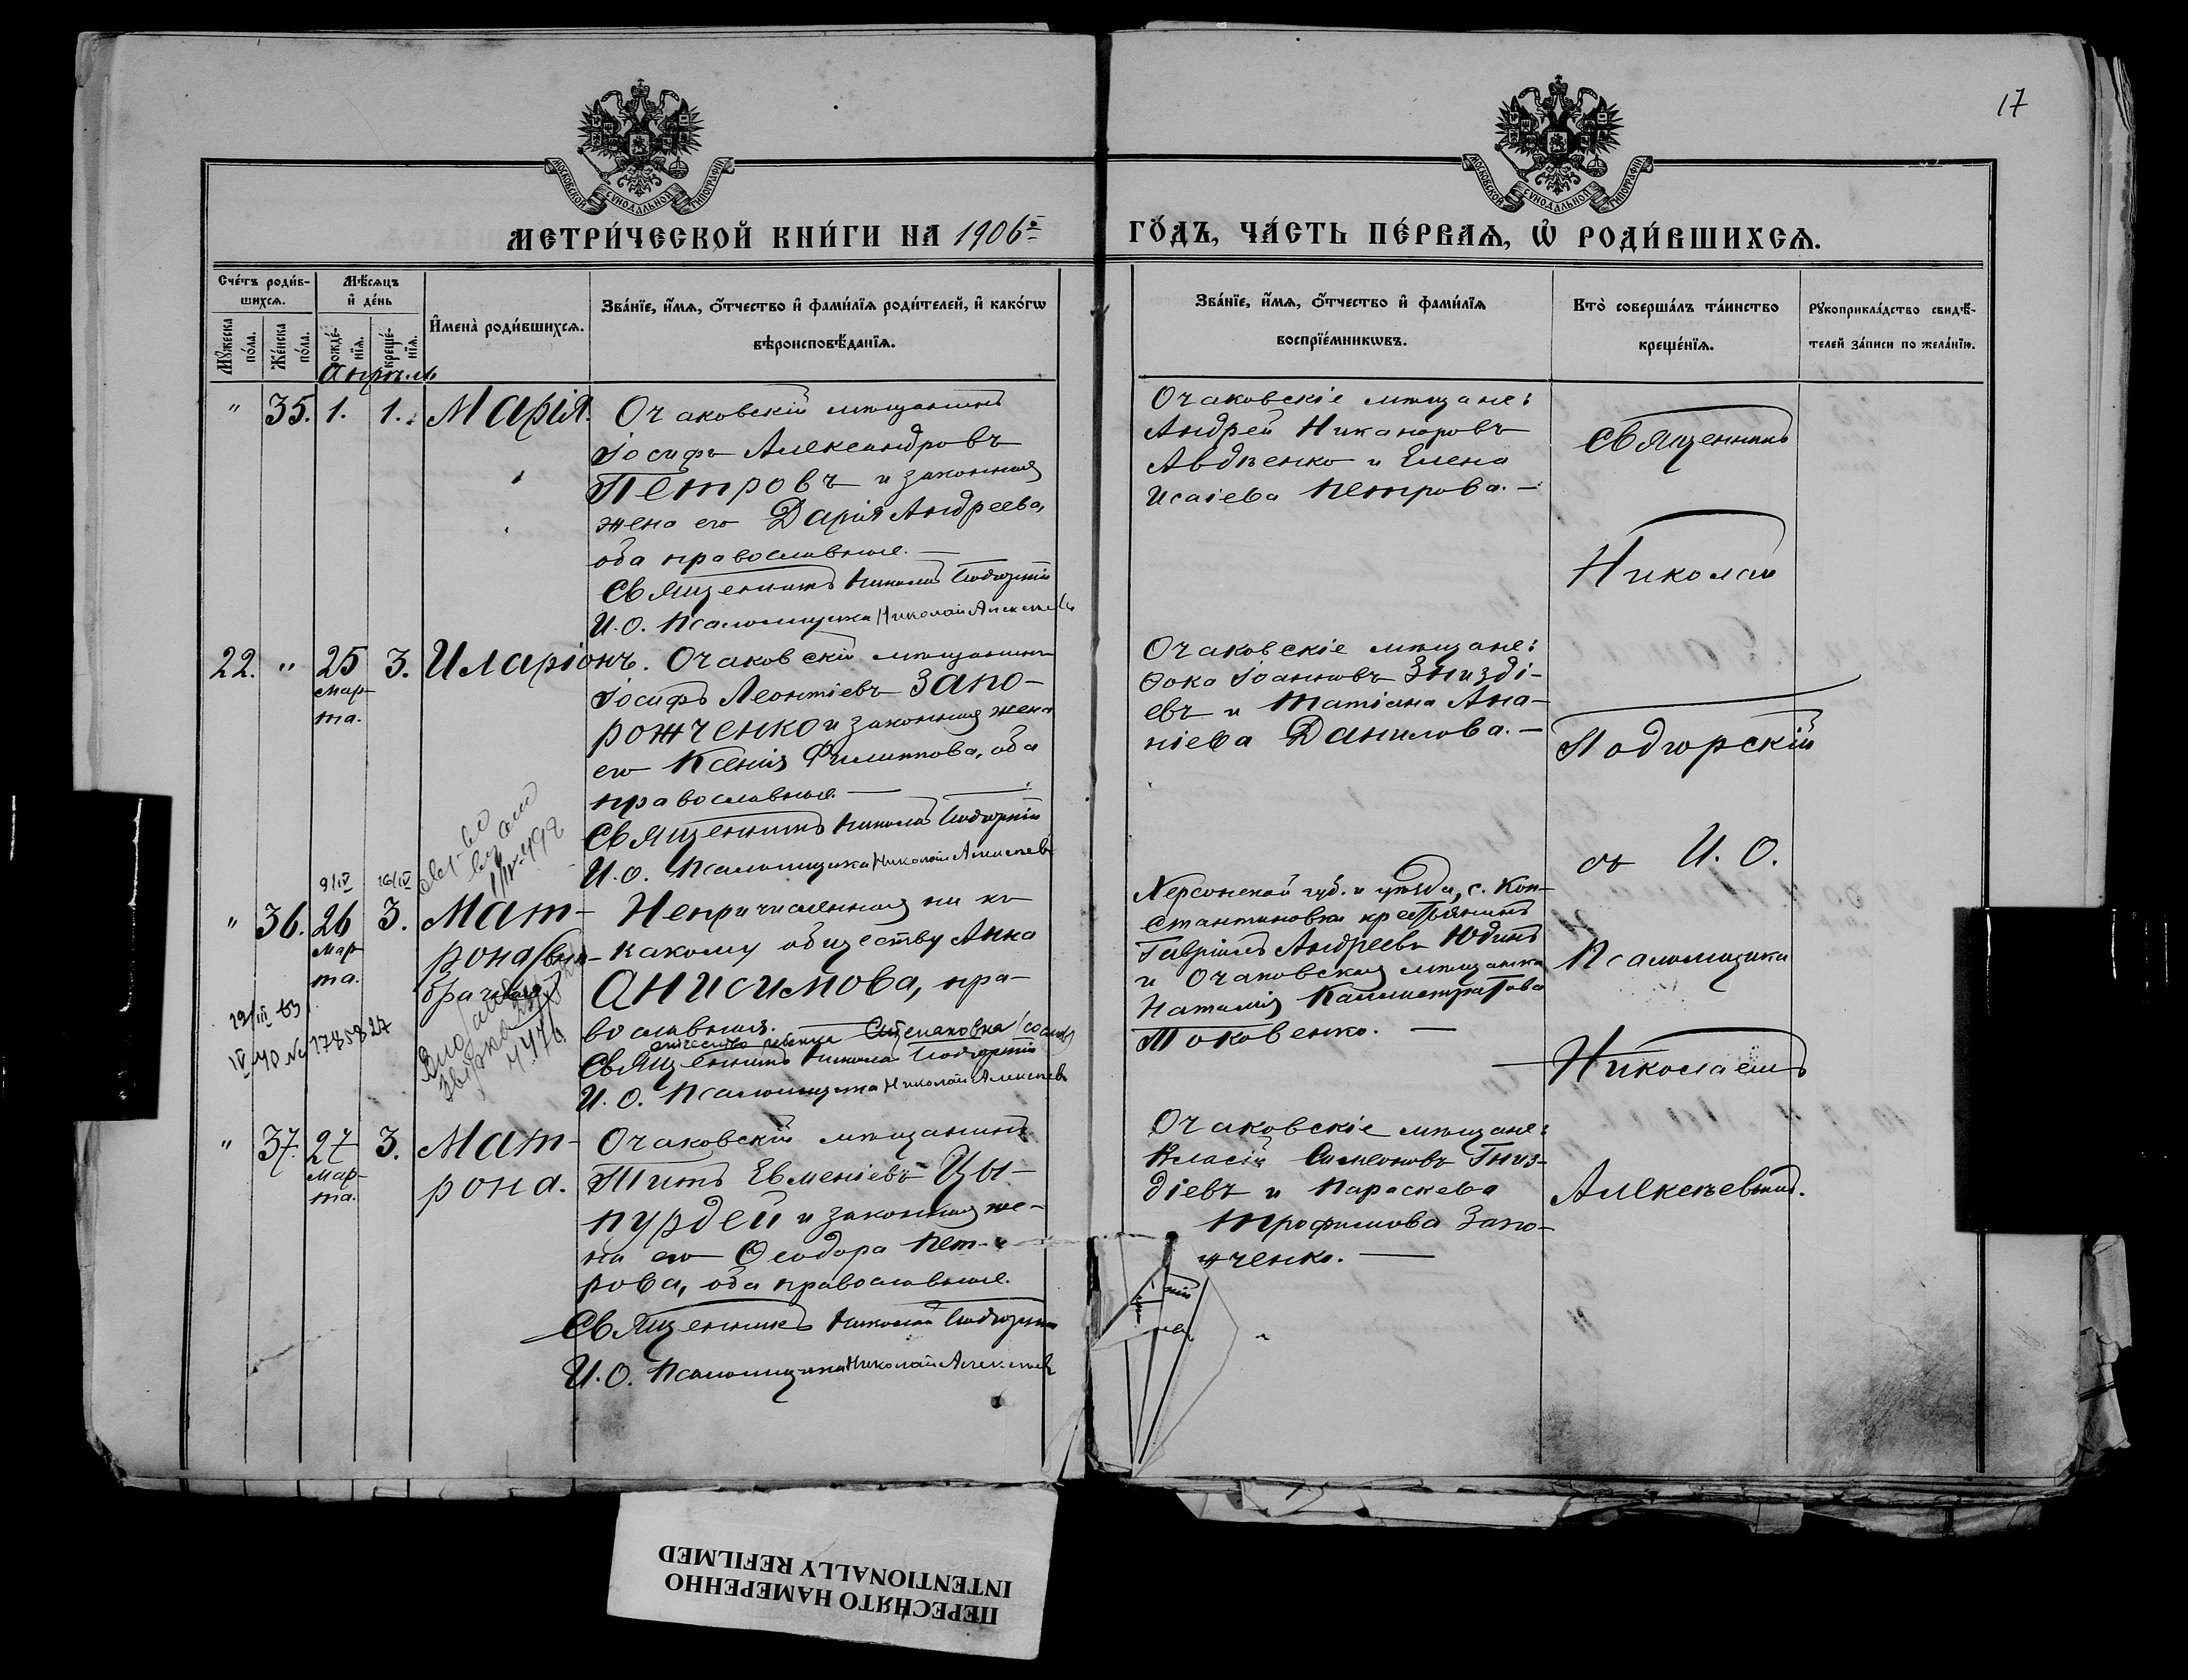 17
МОСКОВСКОЙ СУНОДАЛЬНОЙ ТИПОГРАФІИ
МОСКОВСКОЙ СУНОДАЛЬНОЙ ТИПОГРАФІИ
МЕТРИ́ЧЕСКОЙ КНИ́ГИ НА 1906й
ГО́ДЪ, ЧА́СТЬ ПЕ́РВАѦ, Ѡ҆ РОДИ́ВШИХСѦ.
Сче́тъ роди́в-
шихсѧ.
Мꙋ́жеска по́ла.
Же́нска по́ла.
Мѣ́сѧцъ
и҆ де́нь
рожде́-
нїѧ.
креще́-
нїѧ.
И҆мена̀ роди́вшихсѧ.
Зва́нїе, и҆́мѧ, ѻ҆́тчество и҆ фами́лїѧ роди́телей, и҆ како́гѡ
вѣроисповѣ́данїѧ.
Зва́нїе, и҆́мѧ, ѻ҆́тчество и҆ фами́лїѧ
воспрїе́мникѡвъ.
Кто̀ соверша́лъ та́инство
креще́нїѧ.
Рꙋкоприкла́дство свидѣ́-
телей за́писи по жела́нїю.
Апрѣль
" 35. 1. 1. Марія.
Очаковскій мѣщанинъ
Іосифъ Александровъ
Петровъ и законная
жена его Дарія Андреева,
оба православные. —
Священникъ Николай Подгорскій
И. О. Псаломщика Николай Алексѣевъ
Очаковскіе мѣщане:
Андрей Никаноровъ
Авдѣенко и Елена
Исаіева Петрова. —
22. " 25 3. Иларіонъ.
Мар-
та.
Очаковскій мѣщанинъ
Іосифъ Леонтіевъ Запо-
рожченко и законная жена
его Ксенія Филиппова, оба
православные. —
Священникъ Николай Подгорскій
И. О. Псаломщика Николай Алексѣевъ
Очаковскіе мѣщане:
Ѳока Іоанновъ Гнизді-
евъ и Татіана Ана-
ніева Данилова. —
9/IV 16/IV
" 36. 26 3. Мат-
Мар-
та.
рона (вне-
брачная
Непричисленная ни къ
какому обществу Анна
Анисимова, пра-
вославная.
отчество ребенка Степановна
Священникъ Николай Подгорскій
И. О. Псаломщика Николай Алексѣевъ
Херсонской губ. и уѣзда, с. Кон-
стантиновки крестьянинъ
Гавріилъ Андреевъ Юдинъ
и Очаковская мѣщанка
Наталія Каллистратова
Токовенко. —
" 37. 27 3. Мат-
Мар-
та.
рона.
Очаковскій мѣщанинъ
Титъ Евменіевъ Цы-
пурдей и законная же-
на его Ѳеодора Пет-
рова, оба православные.
Священникъ Николай Подгорскій
И. О. Псаломщика Николай Алексѣевъ
Очаковскіе мѣщане:
Власій Симеоновъ Гниз-
діевъ и Параскева
Трофимова Запо-
жченко. —
Священникъ
Николай
Подгорскій
съ И. О.
Псаломщика
Николаемъ
Алексѣевымъ.
ПЕРЕСНЯТО НАМЕРЕННО
INTENTIONALLY REFILMED